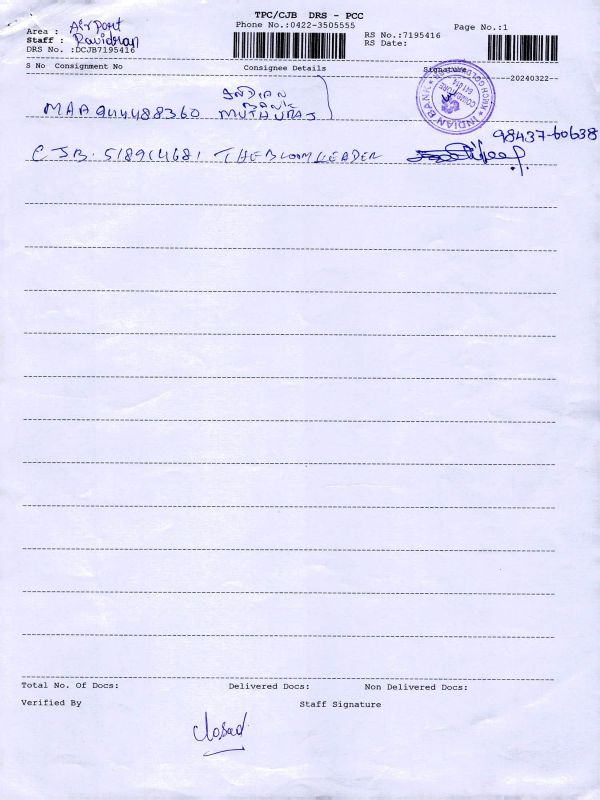 TPC/CJB DRS - PCC
Phone No.:0422-3505555
Page No.:1
Area : Airport
Staff :
DRS No. :DCJB7195416
RS No.:7195416
RS Date:
S No Consignment No Consignee Details Signature
--20240322--
MAA944488360 INDIAN
BANK
MUTHURAJ
INDIAN BANK
COIMBATORE
641 014
98437-60638
CJB. 518914681 THEBLOOMLEADER
Total No. Of Docs: Delivered Docs: Non Delivered Docs:
Verified By Staff Signature
closed